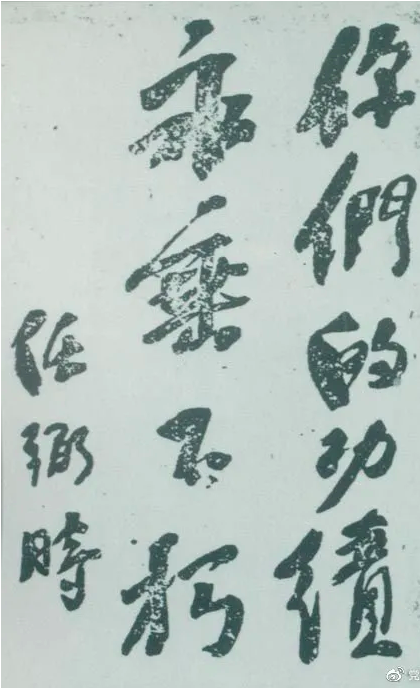 你們的功績
永垂不朽
任弼時
党